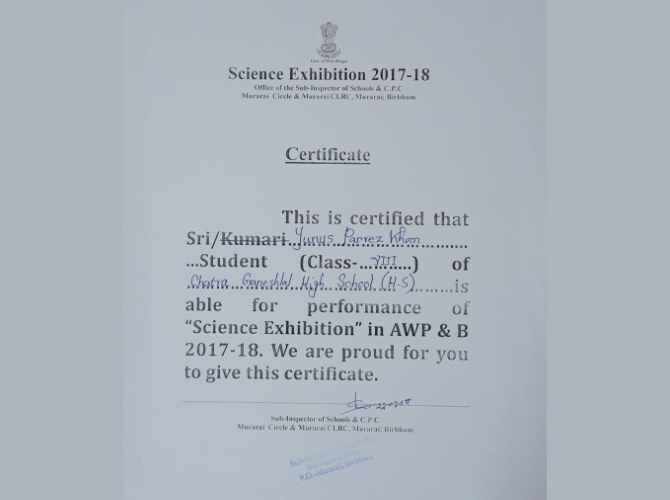 Govt. of West Bengal
Science Exhibition 2017-18
Office of the Sub-Inspector of Schools & C.P.C
Murarai Circle & Murarai CLRC, Murarai; Birbhum
Certificate
This is certified that
Sri/Kumari..Yunus Parvez Khan..........
...Student (Class-..VIII......) of
.Chatra Ganeshlal High School (H.S)..........is
able for performance of
“Science Exhibition” in AWP & B
2017-18. We are proud for you
to give this certificate.
Sub-Inspector of Schools & C.P.C
Murarai Circle & Murarai CLRC, Murarai; Birbhum
Murarai Circle
P.O.-Murarai, Birbhum